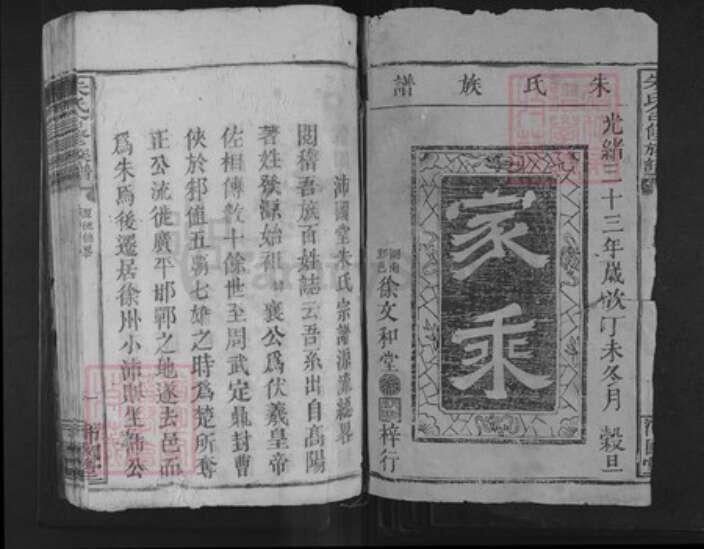 朱氏族譜
光緒三十三年歲次丁未冬月 穀旦
家乘
湖南
徐文和堂
梓行
沛國堂朱氏宗譜源流總畧
閱稽吾族百姓誌云吾系出自高陽
著姓發源始祖襄公為伏羲皇帝
佐相傳數十餘世至周武定鼎封曹
俠於邾值五霸七雄之時為楚所奪
正公流徙廣平邯鄲之地遂去邑而
為朱焉後遷居徐州小沛縣生蒲公
朱氏 修族譜
沛國堂